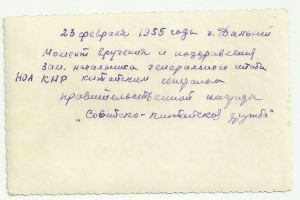 23 февраля 1955 года г. Дальний
Момент вручения и поздравления
Зам. начальника генерального штаба
НОА КНР китайским генералом
правительственной награда
"Советско-китайская дружба"